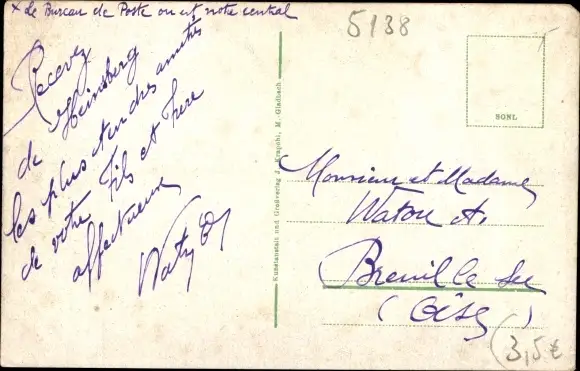 x Le Bureau de Poste ou est notre central
Recevez
de Heinsberg
les plus tendres amitiés
de votre fils et frere
affectueux
5138
SONL
Kunstanstalt und Großverlag J. Krapohl, M. Gladbach
Monsieur et Madame
Breuil le Sec
(Oise)
3,5€